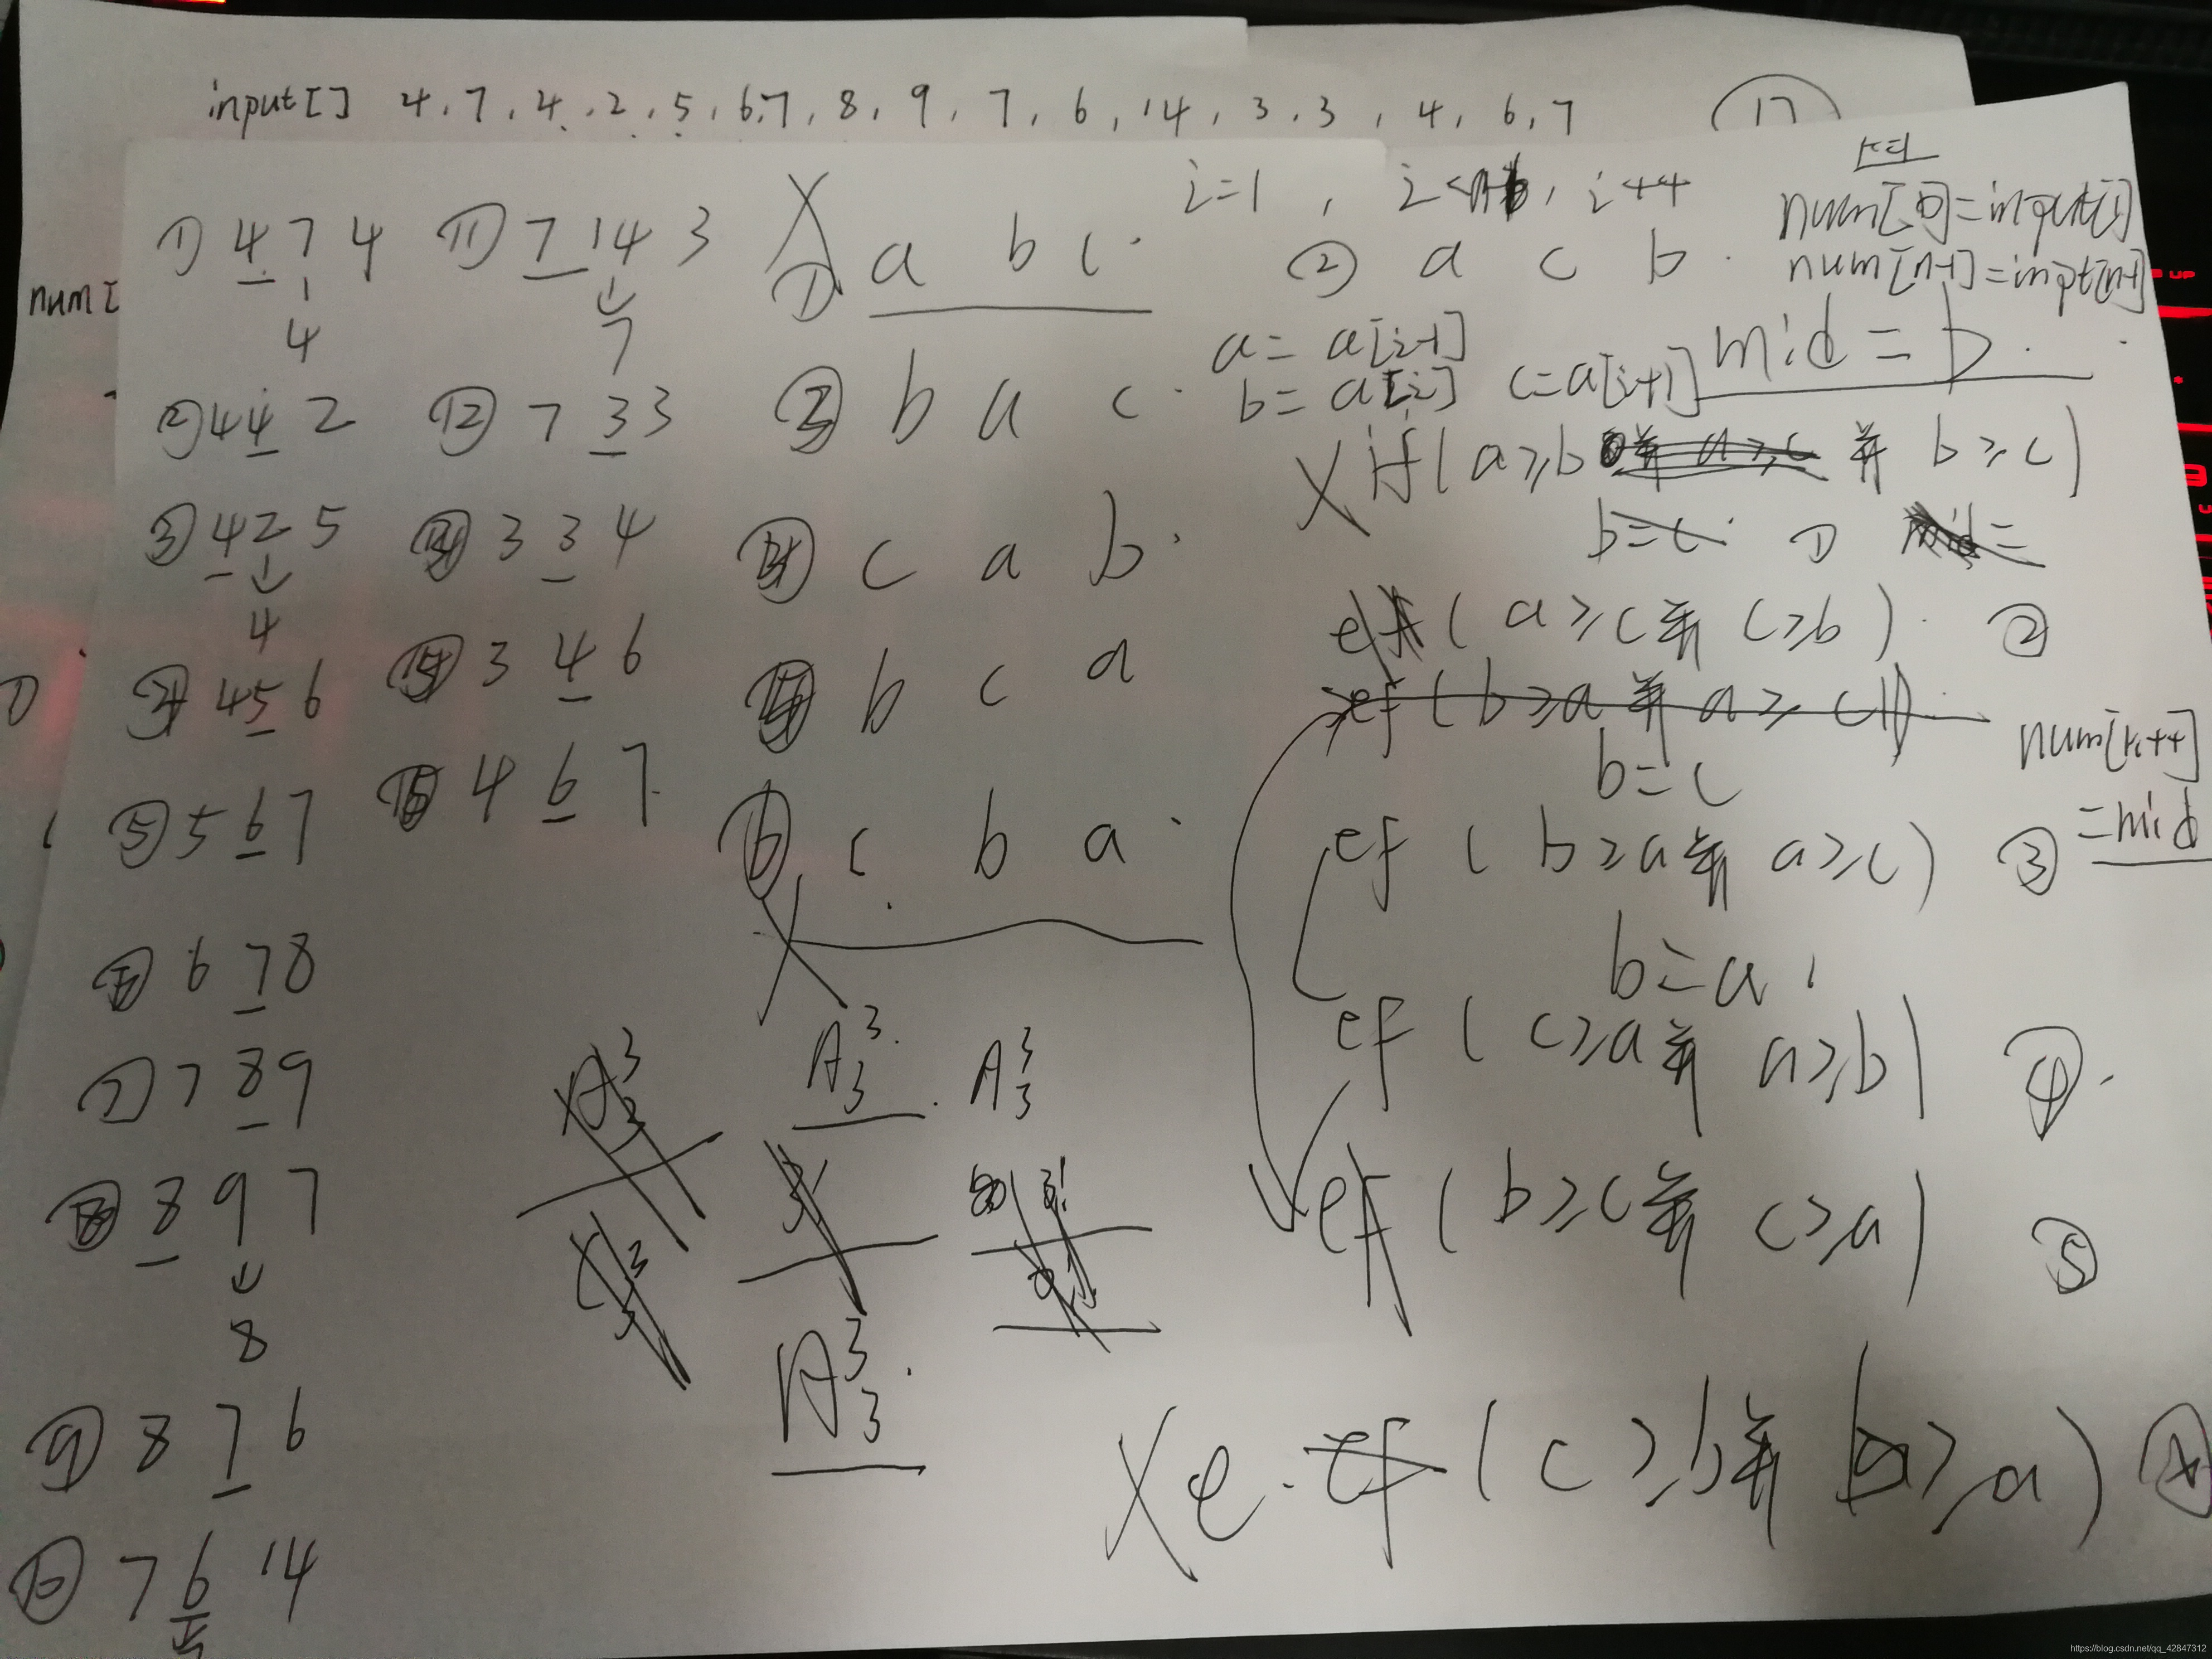 input[] 4, 7, 4, 2, 5, 6, 7, 8, 9, 7, 6, 14, 3, 3, 4, 6, 7
17
num[
① 4 7 4
4
② 4 4 2
③ 4 2 5
4
④ 4 5 6
⑤ 5 6 7
⑥ 6 7 8
⑦ 7 8 9
⑧ 8 9 7
8
⑨ 8 7 6
⑩ 7 6 14
7
⑪ 7 14 3
7
⑫ 7 3 3
3 3 4
3 4 6
4 6 7
① a b c
② a c b
③ b a c
④ c a b
⑤ b c a
⑥ c b a
A³₃ A³₃
A³₃
i=1, i<n-1, i++
k=1
num[0]=input[i]
num[n-1]=inpt[n-1]
a = a[i-1]
b = a[i] c=a[i+1]
mid = b
if (a≥b 并 b≥c)
b=c ① mid=
ef (a≥c 并 c≥b) ②
ef (b≥a 并 a≥c)
b=c
num[k++]
=mid
ef (b≥a 并 a≥c) ③
b=a
ef (c≥a 并 a≥b) ④
ef (b≥c 并 c≥a) ⑤
e ef (c≥b 并 b≥a)
https://blog.csdn.net/qq_42847312